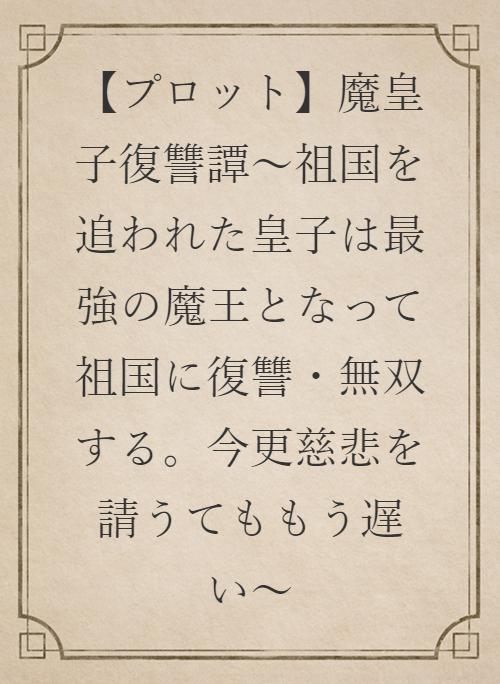 【プロット】魔皇
子復讐譚～祖国を
追われた皇子は最
強の魔王となって
祖国に復讐・無双
する。今更慈悲を
請うてももう遅
い～